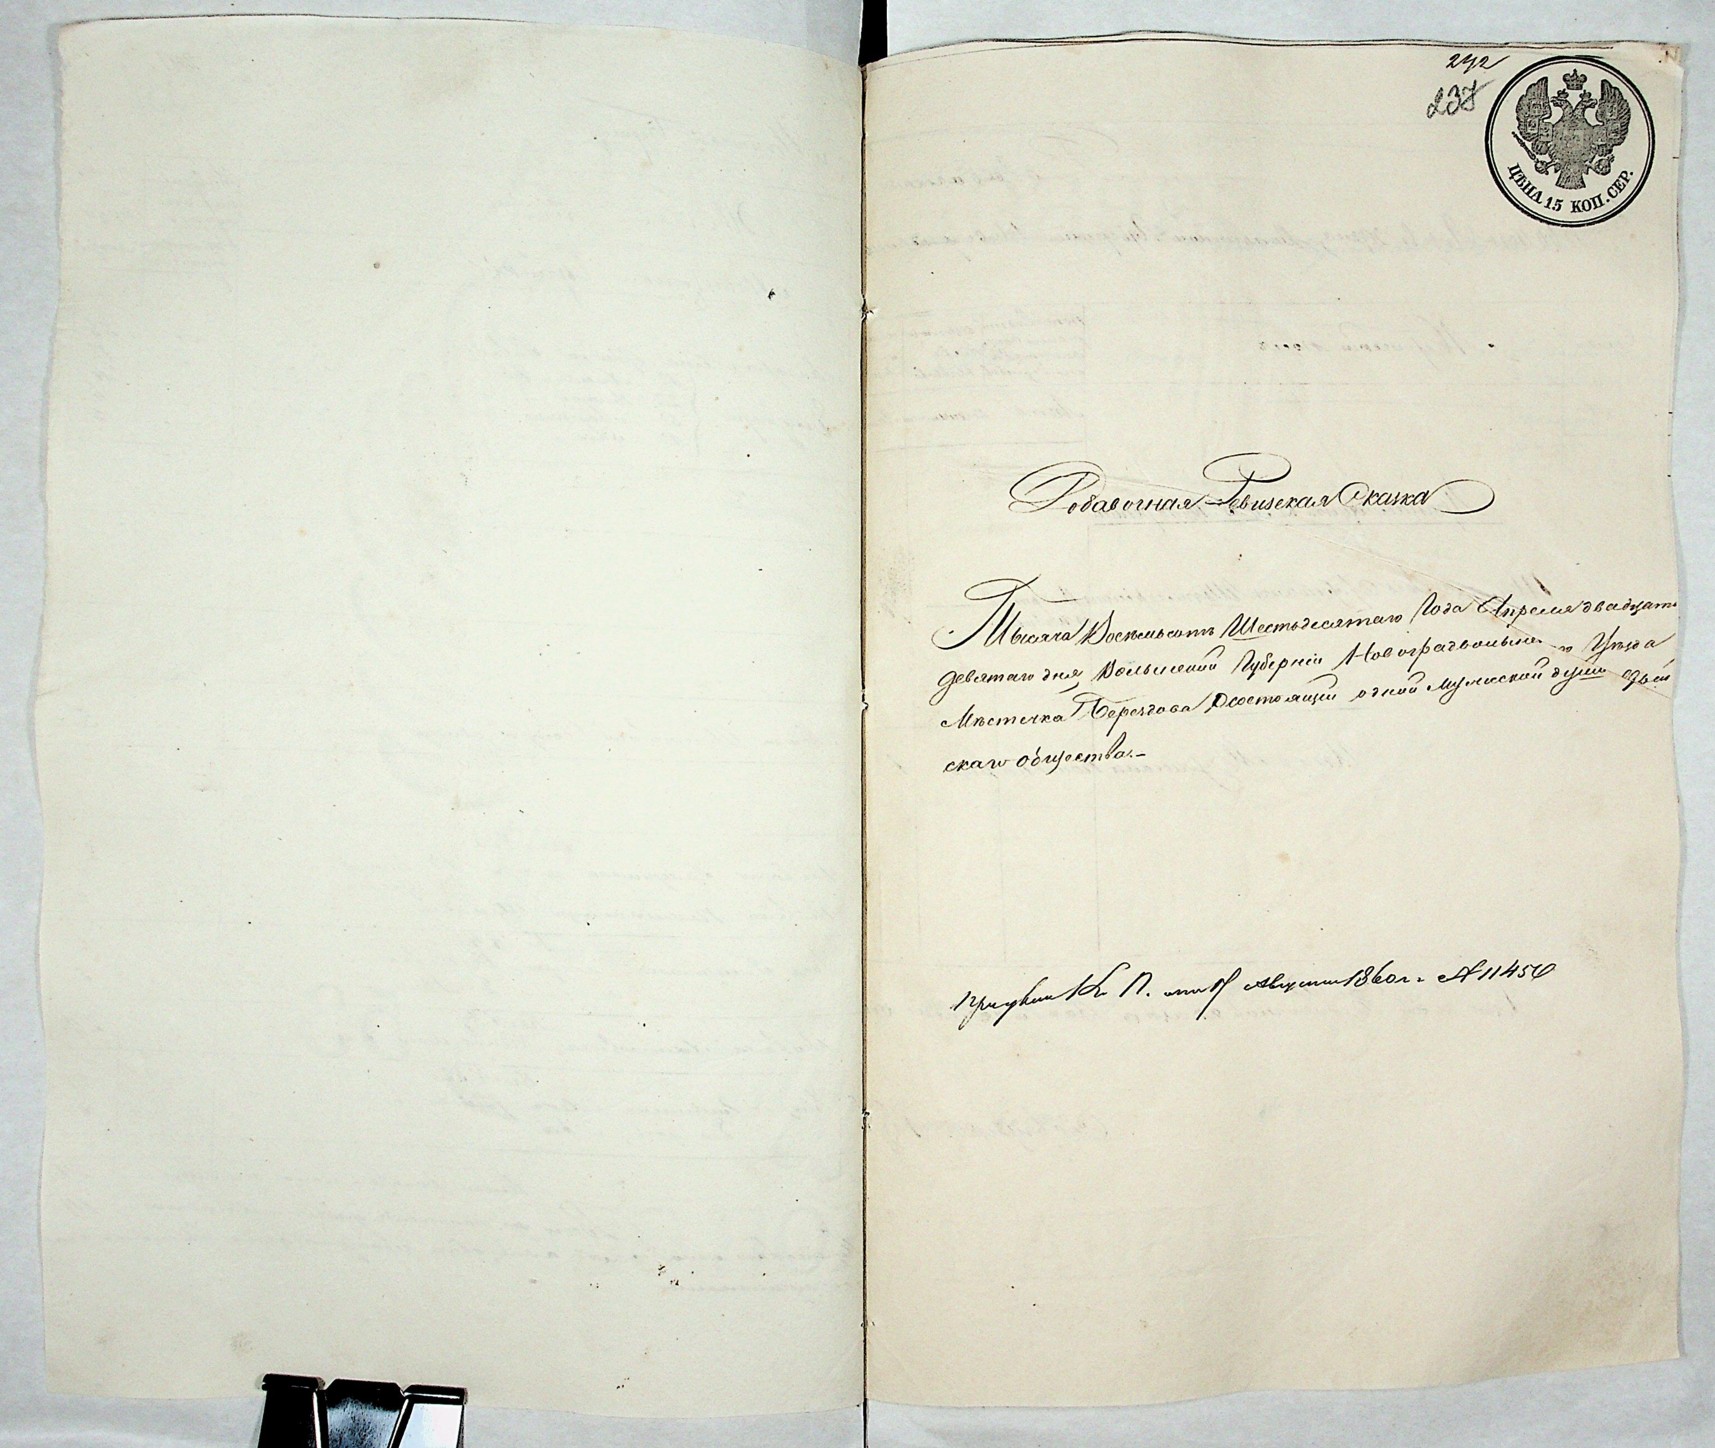 242
237
ЦѢНА 15 КОП. СЕР.
Добавочная Ревизская Сказка
Тысяча Восемьсотъ Шестьдесятаго Года Апреля двадцать
девятаго дня, Волынской Губерніи Новоградволынскаго Уѣзда
Мѣстечка Берездова Осостоящей одной мужеской души
скаго общества.-
К. П. Августа 1860 г. № 11456